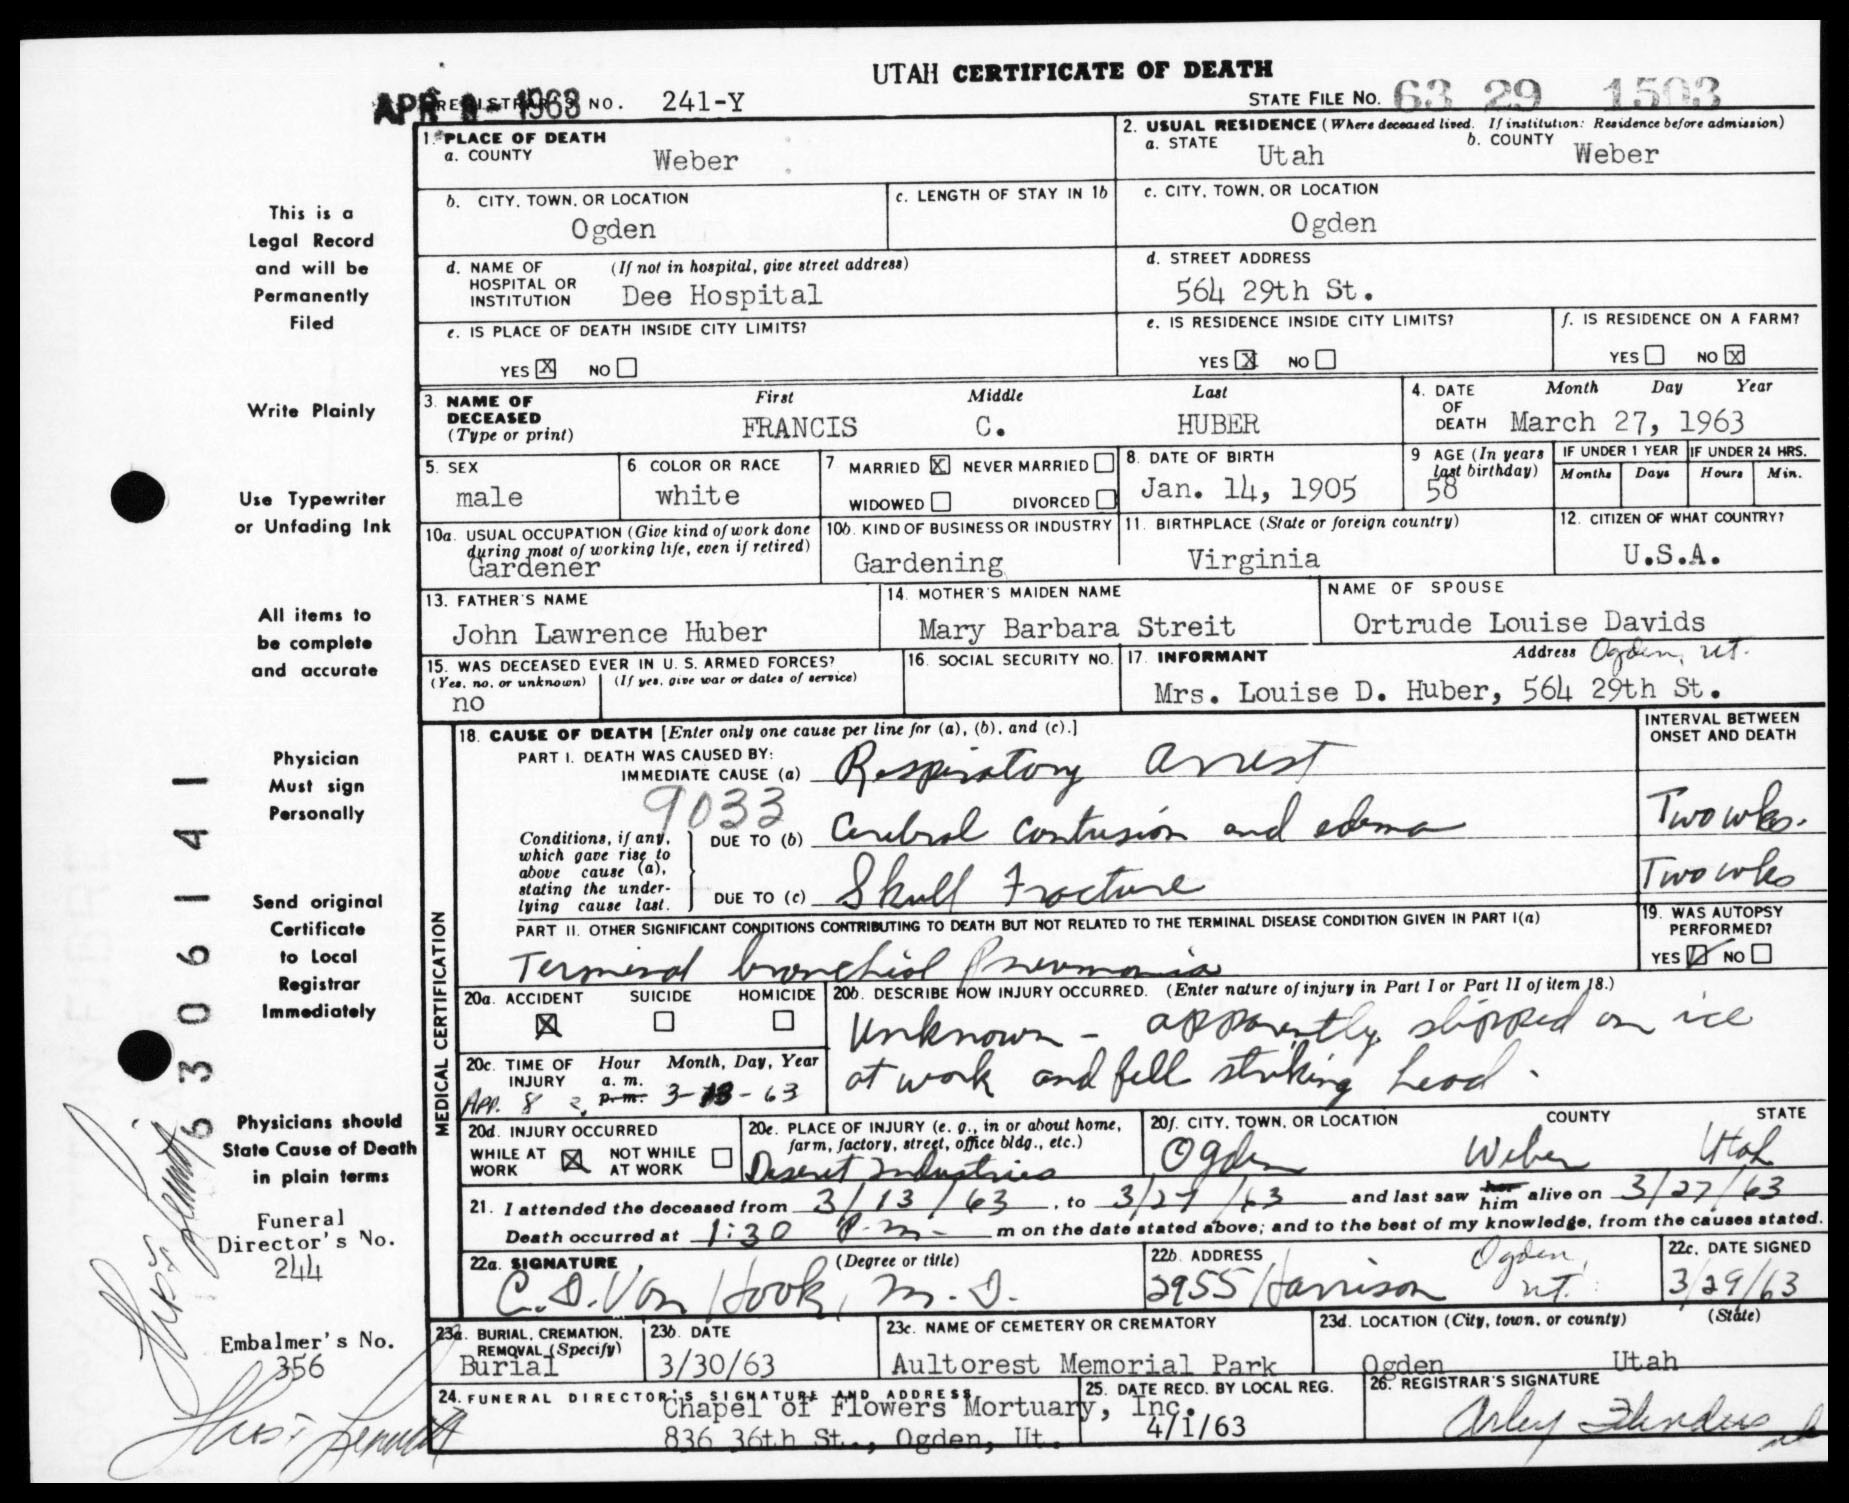 UTAH CERTIFICATE OF DEATH
APR 1963 REGISTRAR'S NO. 241-Y
STATE FILE NO. 63 29 1503
This is a
Legal Record
and will be
Permanently
Filed
Write Plainly
Use Typewriter
or Unfading Ink
All items to
be complete
and accurate
Physician
Must sign
Personally
Send original
Certificate
to Local
Registrar
Immediately
Physicians should
State Cause of Death
in plain terms
Funeral
Director's No.
244
Embalmer's No.
356
63061441
1. PLACE OF DEATH
a. COUNTY
Weber
2. USUAL RESIDENCE (Where deceased lived. If institution: Residence before admission)
a. STATE Utah b. COUNTY Weber
b. CITY, TOWN, OR LOCATION
Ogden
c. LENGTH OF STAY IN 1b
c. CITY, TOWN, OR LOCATION
Ogden
d. NAME OF HOSPITAL OR INSTITUTION (If not in hospital, give street address)
Dee Hospital
d. STREET ADDRESS
564 29th St.
e. IS PLACE OF DEATH INSIDE CITY LIMITS?
YES X NO
e. IS RESIDENCE INSIDE CITY LIMITS?
YES X NO
f. IS RESIDENCE ON A FARM?
YES NO X
3. NAME OF DECEASED (Type or print)
First Middle Last
FRANCIS C. HUBER
4. DATE OF DEATH Month Day Year
March 27, 1963
5. SEX
male
6 COLOR OR RACE
white
7 MARRIED X NEVER MARRIED
WIDOWED DIVORCED
8. DATE OF BIRTH
Jan. 14, 1905
9 AGE (In years last birthday)
58
IF UNDER 1 YEAR
Months Days
IF UNDER 24 HRS.
Hours Min.
10a. USUAL OCCUPATION (Give kind of work done during most of working life, even if retired)
Gardener
10b. KIND OF BUSINESS OR INDUSTRY
Gardening
11. BIRTHPLACE (State or foreign country)
Virginia
12. CITIZEN OF WHAT COUNTRY?
U.S.A.
13. FATHER'S NAME
John Lawrence Huber
14. MOTHER'S MAIDEN NAME
Mary Barbara Streit
NAME OF SPOUSE
Ortrude Louise Davids
15. WAS DECEASED EVER IN U. S. ARMED FORCES?
(Yes, no, or unknown) (If yes, give war or dates of service)
no
16. SOCIAL SECURITY NO.
17. INFORMANT Address Ogden, Ut.
Mrs. Louise D. Huber, 564 29th St.
MEDICAL CERTIFICATION
18. CAUSE OF DEATH [Enter only one cause per line for (a), (b), and (c).]
INTERVAL BETWEEN ONSET AND DEATH
PART I. DEATH WAS CAUSED BY:
IMMEDIATE CAUSE (a) Respiratory arrest
9033
Conditions, if any, which gave rise to above cause (a), stating the underlying cause last.
DUE TO (b) Cerebral contusion and edema Two wks.
DUE TO (c) Skull Fracture Two wks
PART II. OTHER SIGNIFICANT CONDITIONS CONTRIBUTING TO DEATH BUT NOT RELATED TO THE TERMINAL DISEASE CONDITION GIVEN IN PART I(a)
Terminal bronchial Pneumonia
19. WAS AUTOPSY PERFORMED?
YES NO
20a. ACCIDENT SUICIDE HOMICIDE
X
20b. DESCRIBE HOW INJURY OCCURRED. (Enter nature of injury in Part I or Part II of item 18.)
Unknown - apparently slipped on ice
at work and fell striking head.
20c. TIME OF INJURY Hour a. m. p. m. Month, Day, Year
App. 8 3-13-63
20d. INJURY OCCURRED
WHILE AT WORK X NOT WHILE AT WORK
20e. PLACE OF INJURY (e. g., in or about home, farm, factory, street, office bldg., etc.)
Deseret Industries
20f. CITY, TOWN, OR LOCATION COUNTY STATE
Ogden Weber Utah
21. I attended the deceased from 3/13/63, to 3/27/63 and last saw her him alive on 3/27/63
Death occurred at 1:30 P.m. m on the date stated above; and to the best of my knowledge, from the causes stated.
22a. SIGNATURE (Degree or title)
C. D. Van Hook, M. D.
22b. ADDRESS
2955 Harrison Ogden, Ut.
22c. DATE SIGNED
3/29/63
23a. BURIAL, CREMATION, REMOVAL (Specify)
Burial
23b. DATE
3/30/63
23c. NAME OF CEMETERY OR CREMATORY
Aultorest Memorial Park
23d. LOCATION (City, town, or county) (State)
Ogden Utah
24. FUNERAL DIRECTOR'S SIGNATURE AND ADDRESS
Chapel of Flowers Mortuary, Inc.
836 36th St., Ogden, Ut.
25. DATE RECD. BY LOCAL REG.
4/1/63
26. REGISTRAR'S SIGNATURE